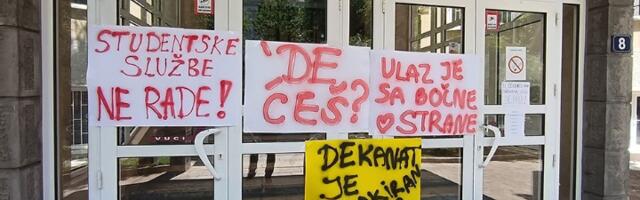 STUDENTSKE
SLUŽBE
NE RADE!
'DE
ĆEŠ?
ULAZ JE
SA BOČNE
STRANE
DEKANAT
JE
8
VUCI